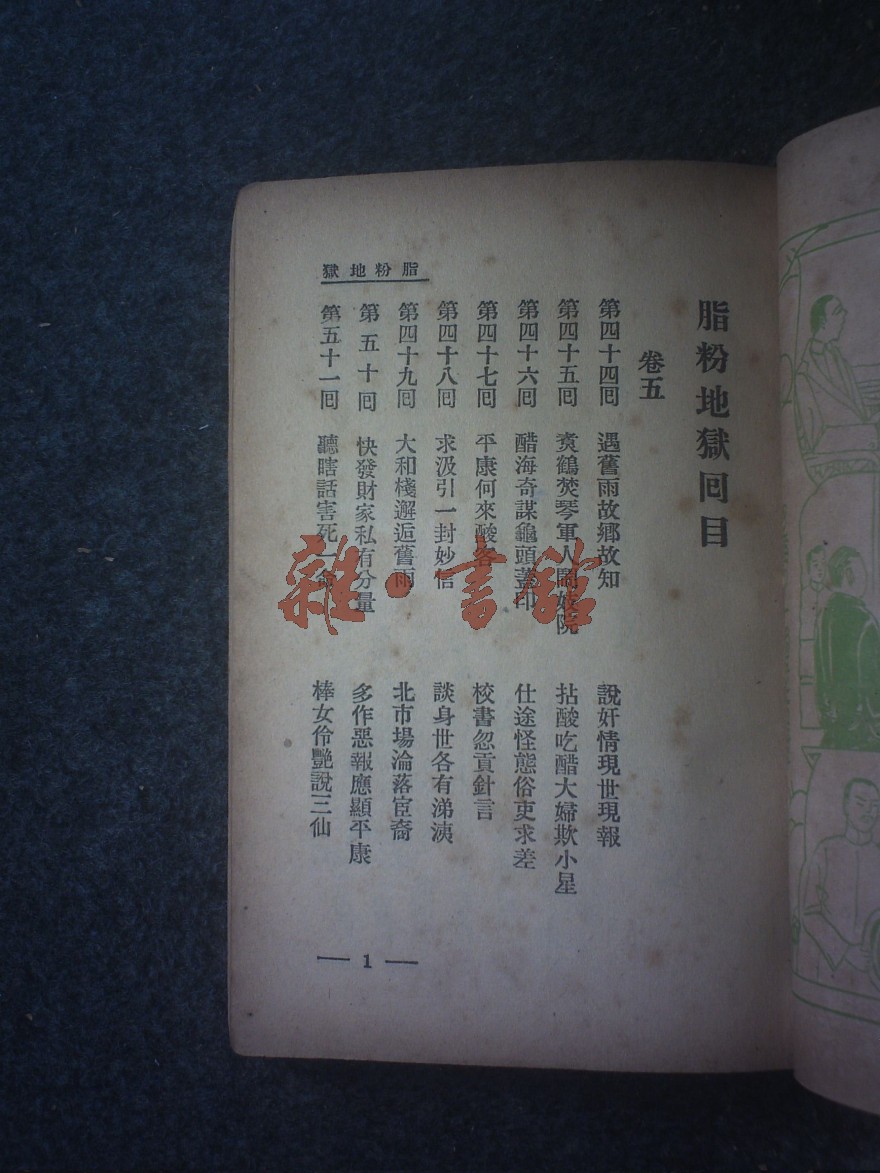 脂粉地獄囘目
卷五
第四十四囘 遇舊雨故鄉故知 說奸情現世現報
第四十五囘 焚琴軍人鬧妓院 拈酸吃醋大婦欺小星
第四十六囘 醋海奇謀龜頭蓋印 仕途怪態俗吏求差
第四十七囘 平康何來酸客 校書忽貢針言
第四十八囘 求汲引一封妙信 談身世各有涕洟
第四十九囘 大和棧邂逅舊雨 北市場淪落宦裔
第五十囘 快發財家私有分量 多作惡報應顯平康
第五十一囘 聽瞎話害死一命 棒女伶艷說三仙
脂粉地獄
— 1 —
雜·書館